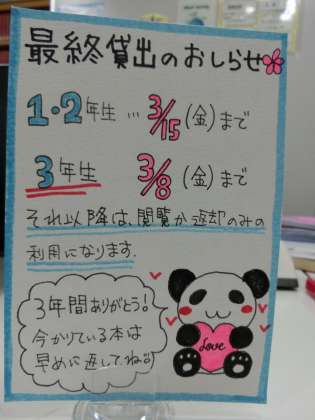 最終貸出のおしらせ
1・2年生 … 3/15(金)まで
3年生 3/8(金)まで
それ以降は、閲覧か返却のみの
利用になります。
3年間ありがとう!
今かりている本は
早めに返してね
Love